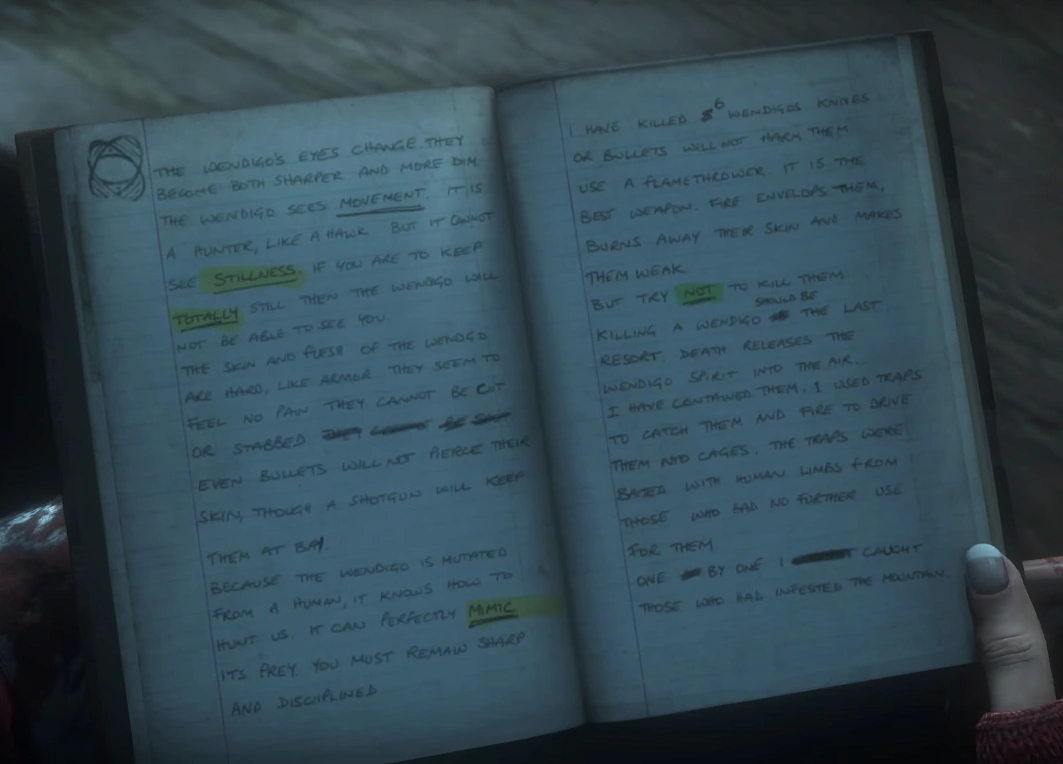 THE WENDIGO'S EYES CHANGE. THEY
BECOME BOTH SHARPER AND MORE DIM
THE WENDIGO SEES MOVEMENT. IT IS
A HUNTER, LIKE A HAWK BUT IT CANNOT
SEE STILLNESS. IF YOU ARE TO KEEP
TOTALLY STILL THEN THE WENDIGO WILL
NOT BE ABLE TO SEE YOU.
THE SKIN AND FLESH OF THE WENDIGO
ARE HARD, LIKE ARMOR THEY SEEM TO
FEEL NO PAIN THEY CANNOT BE CUT
OR STABBED
EVEN BULLETS WILL NOT PIERCE THEIR
SKIN, THOUGH A SHOTGUN WILL KEEP
THEM AT BAY.
BECAUSE THE WENDIGO IS MUTATED
FROM A HUMAN, IT KNOWS HOW TO
HUNT US. IT CAN PERFECTLY MIMIC
ITS PREY. YOU MUST REMAIN SHARP
AND DISCIPLINED
I HAVE KILLED 6 WENDIGOS. KNIVES
OR BULLETS WILL NOT HARM THEM
USE A FLAMETHROWER. IT IS THE
BEST WEAPON. FIRE ENVELOPS THEM,
BURNS AWAY THEIR SKIN AND MAKES
THEM WEAK
BUT TRY NOT TO KILL THEM
KILLING A WENDIGO SHOULD BE THE LAST
RESORT. DEATH RELEASES THE
WENDIGO SPIRIT INTO THE AIR.
I HAVE CONTAINED THEM. I USED TRAPS
TO CATCH THEM AND FIRE TO DRIVE
THEM INTO CAGES. THE TRAPS WERE
BAITED WITH HUMAN LIMBS FROM
THOSE WHO HAD NO FURTHER USE
FOR THEM
ONE BY ONE I CAUGHT
THOSE WHO HAD INFESTED THE MOUNTAIN.